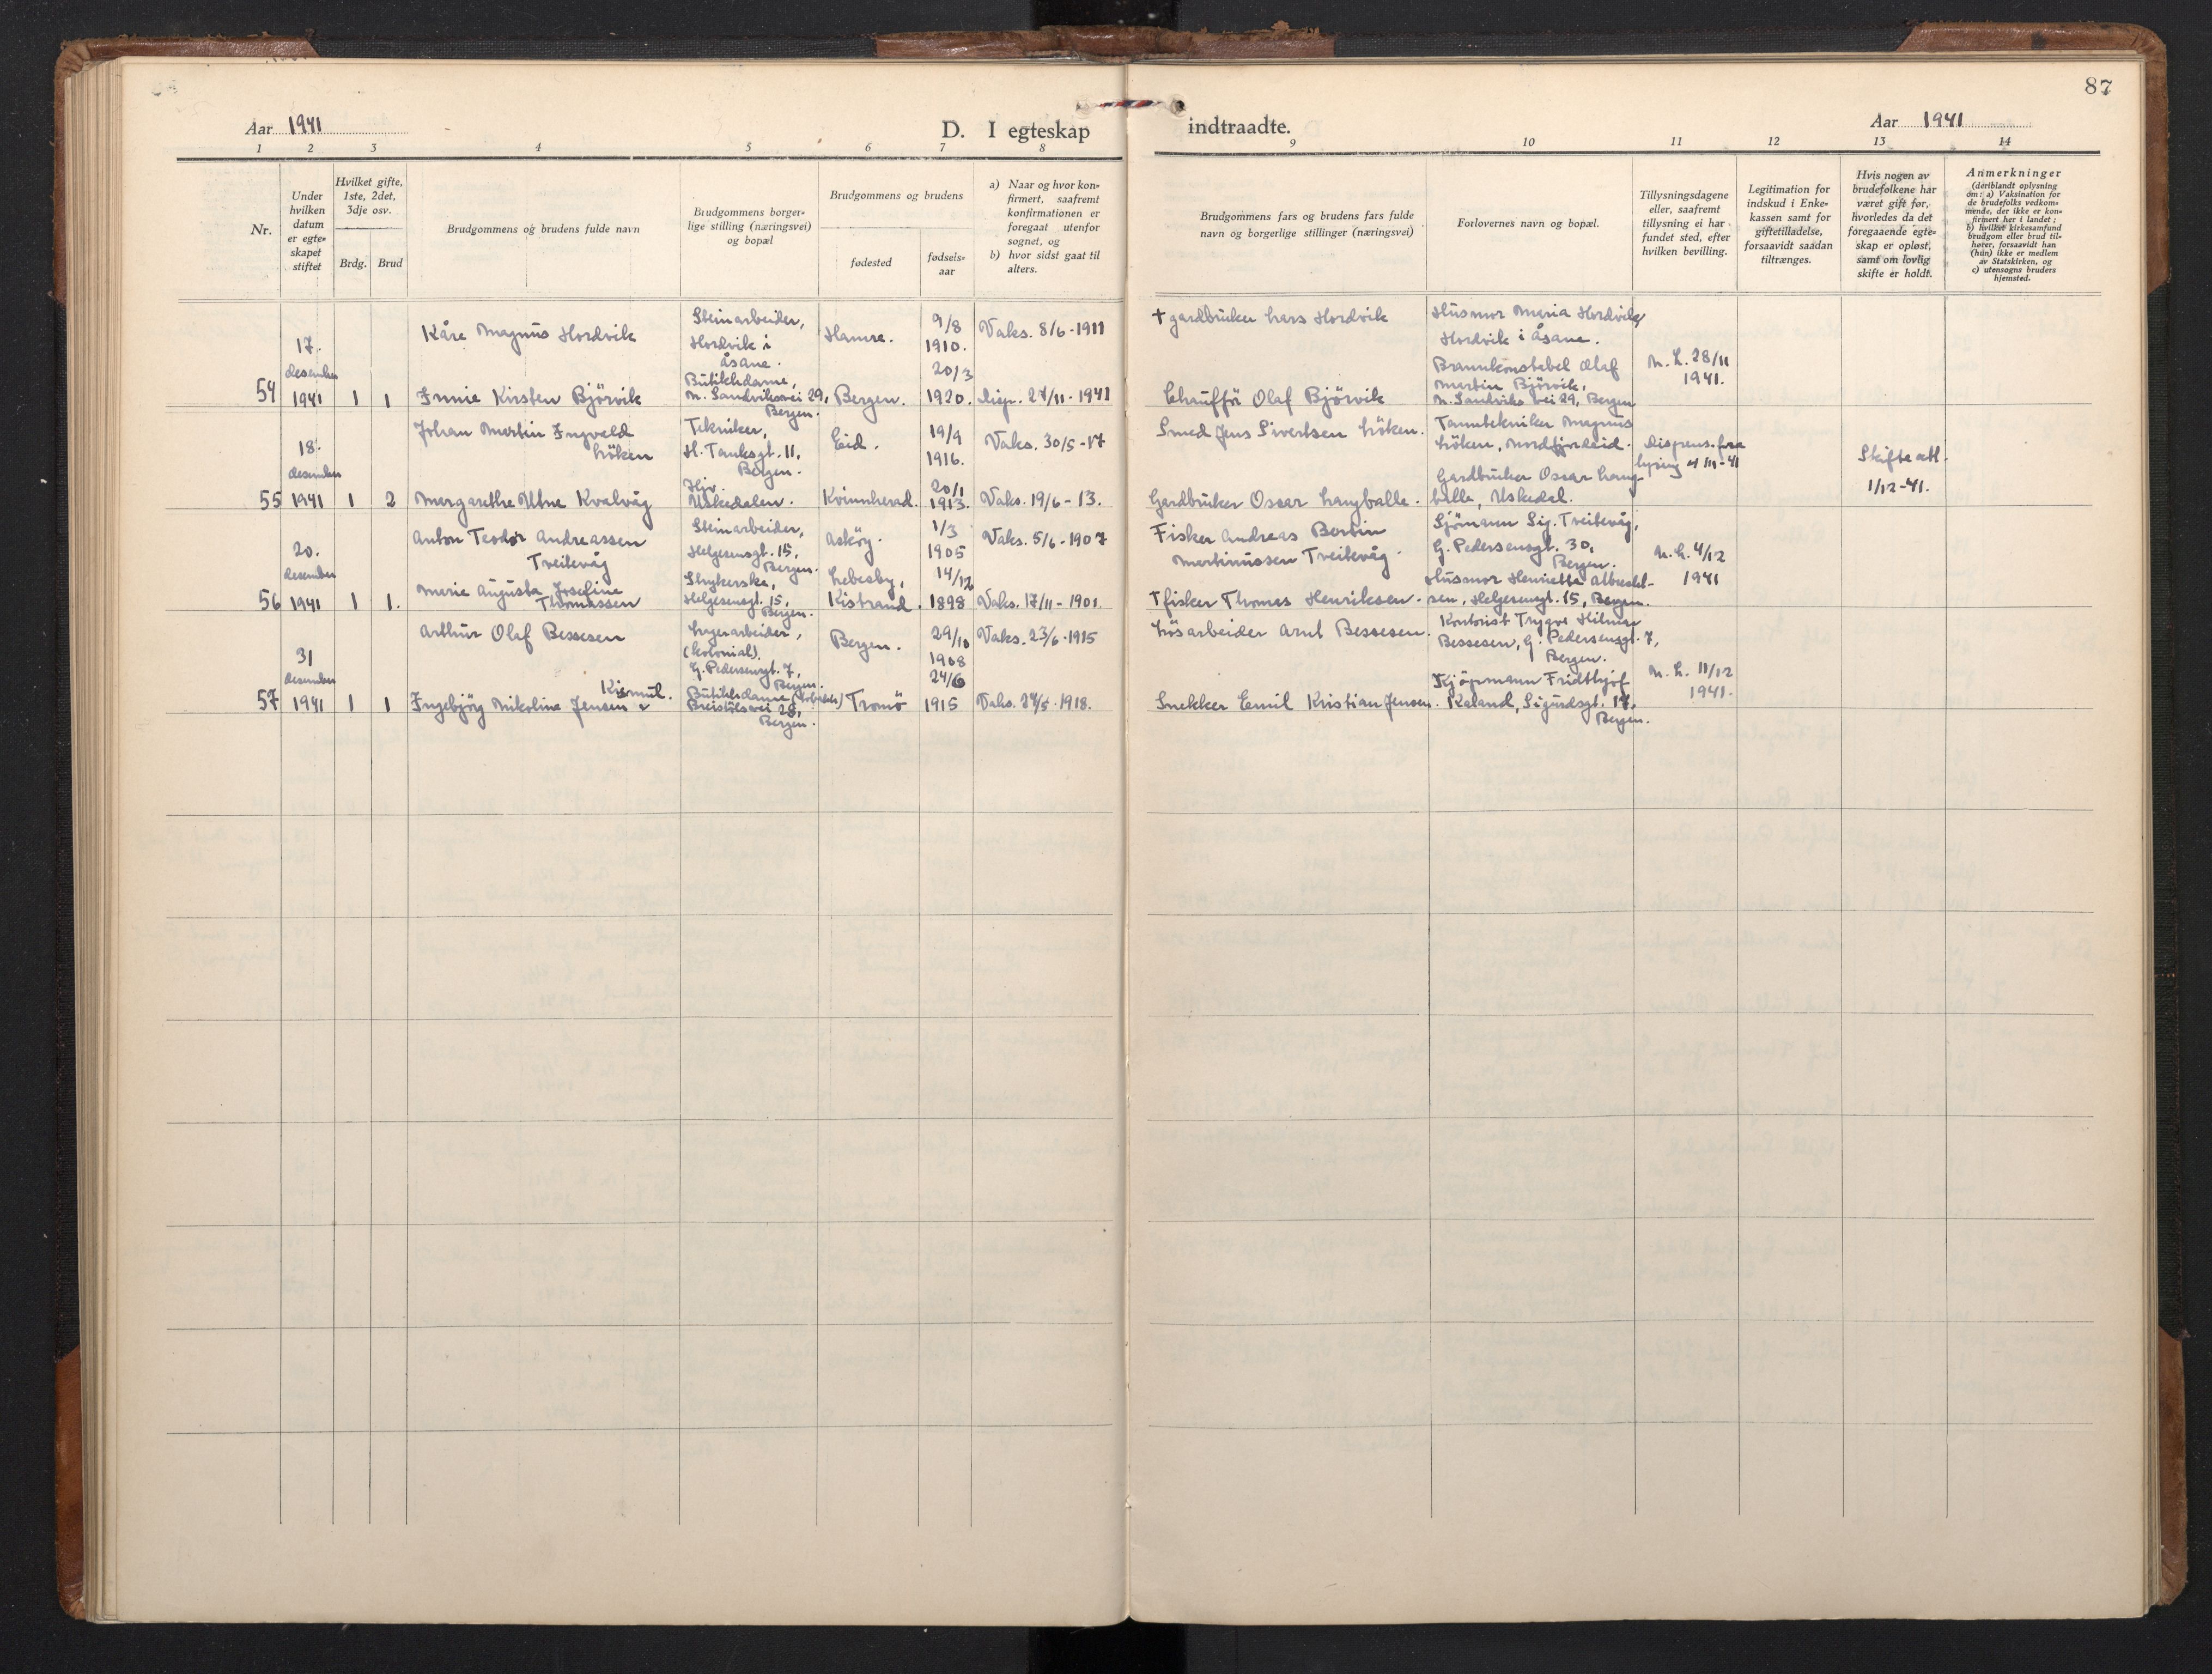 87
Aar 1941
D. I egteskap
indtraadte.
Aar 1941
1 2 3 4 5 6 7 8 9 10 11 12 13 14
Nr.
Under
hvilken
datum
er egte-
skapet
stiftet
Hvilket gifte,
1ste, 2det,
3dje osv.
Brdg. Brud
Brudgommens og brudens fulde navn
Brudgommens borger-
lige stilling (næringsvei)
og bopæl
Brudgommens og brudens
fødested
fødsels-
aar
a) Naar og hvor kon-
firmert, saafremt
konfirmationen er
foregaat utenfor
sognet, og
b) hvor sidst gaat til
alters.
Brudgommens fars og brudens fars fulde
navn og borgerlige stillinger (næringsvei)
Forlovernes navn og bopæl.
Tillysningsdagene
eller, saafremt
tillysning ei har
fundet sted, efter
hvilken bevilling.
Legitimation for
indskud i Enke-
kassen samt for
giftetilladelse,
forsaavidt saadan
tiltrænges.
Hvis nogen av
brudefolkene har
været gift før,
hvorledes da det
foregaaende egte-
skap er opløst,
samt om lovlig
skifte er holdt.
Anmerkninger
(deriblandt oplysning
om: a) Vaksination for
de brudefolks vedkom-
mende, der ikke er kon-
firmert her i landet;
b) hvilket kirkesamfund
brudgom eller brud til-
hører, forsaavidt han
(hun) ikke er medlem
av Statskirken, og
c) utensogns bruders
hjemsted.
54
17.
desember
1941
1 1
Kåre Magnus Hordvik
Steinarbeider,
Hordvik i
Åsane.
Hamre.
9/8
1910.
Vaks. 8/6-1911
† gardbruker Lars Hordvik
Husmor Maria Hordvik,
Hordvik i Åsane.
Ennie Kirsten Björvik
Butikkdame,
N. Sandviksvei 29,
Bergen.
Bergen.
20/3
1920.
disp. 27/11-1941
Chaufför Olaf Björvik
Brannkonstabel Olaf
Martin Björvik,
N. Sandviks vei 29, Bergen
M. L. 28/11
1941.
55
18.
desember
1941
1 2
Johan Martin Ingvald
Löken
Tekniker,
H. Tanksgt. 11,
Bergen.
Eid.
19/9
1916.
Vaks. 30/5-17
Smed Jens Sivertsen Löken.
Tanntekniker Magnus
Löken, Nordfjordeid.
Margarethe Utne Kvalvåg
Hjv.
Uskedalen.
Kvinnherad.
20/1
1913.
Vaks. 19/6-13.
Gardbruker Oscar Langballe.
Gardbruker Oscar Lang-
balle, Uskedal.
Dispens. fra
lysing
Skifteatt.
1/12-41.
56
20.
desember
1941
1 1.
Anton Teodor Andreassen
Treitevåg
Steinarbeider,
Helgesensgt. 15,
Bergen.
Asköy.
1/3
1905
Vaks. 5/6-1907
Fisker Andreas Bertin
Martinussen Treitevåg.
Sjömann Sig. Treitevåg,
G. Pedersensgt. 30,
Bergen.
Marie Augusta Josefine
Thomassen
Strykerske,
Helgesensgt. 15,
Bergen.
Lebesby,
Kistrand.
14/12
1898
Vaks. 17/11-1901.
† fisker Thomas Henriksen.
Husmor Henriette Albrekt-
sen, Helgesensgt. 15, Bergen.
M. L. 4/12
1941
57
31
desember
1941
1 1
Arthur Olaf Bessesen
Lagerarbeider,
(kolonial).
G. Pedersensgt. 7,
Bergen.
Bergen.
29/10
1908
Vaks. 23/6-1915
Lösarbeider Arnt Bessesen.
Kontorist Trygve Hilmar
Bessesen, G. Pedersensgt. 7,
Bergen.
Kismul.
Ingebjörg Nikoline Jensen
Butikkdame (tobakk)
Breistölsvei 28,
Bergen.
Tromö
24/6
1915
Vaks. 24/5-1918.
Snekker Emil Kristian Jensen.
Kjöpmann Fridthjof
Kaland, Sigurdsgt. 17.
Bergen.
M. L. 11/12
1941.